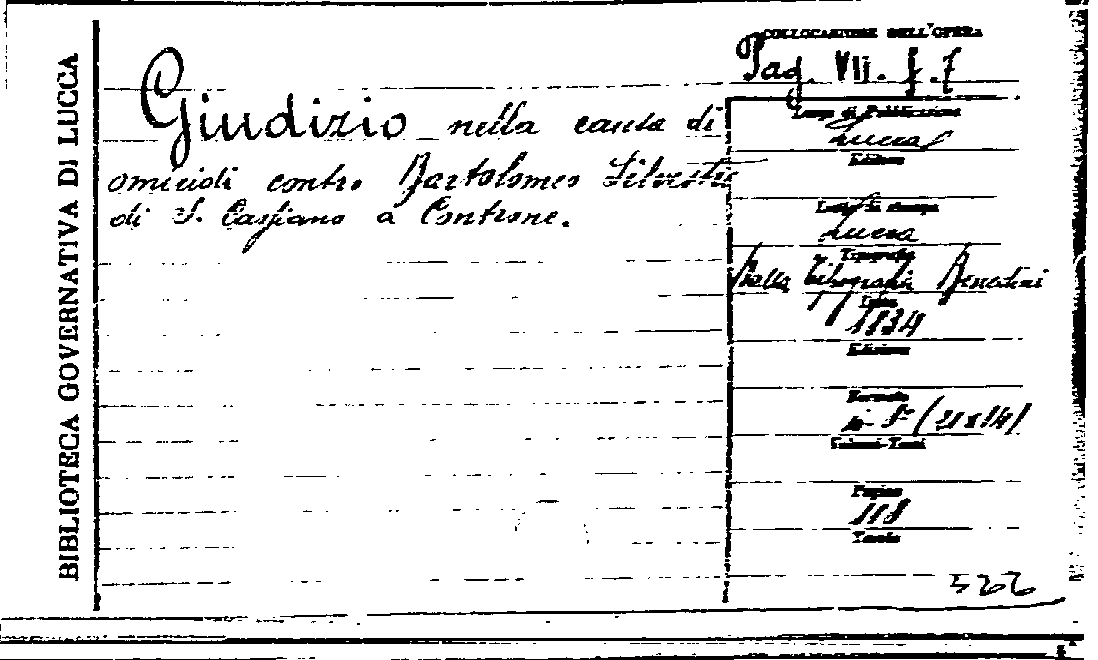 BIBLIOTECA GOVERNATIVA DI LUCCA
Giudizio nella causa di
omicidi contro Bartolomeo Silvestri
di S. Cassiano a Controne.
COLLOCAZIONE DELL'OPERA
Pag. VII.
Luogo di Pubblicazione
Lucca
Editore
Luogo di stampa
Lucca
Tipografia
Dalla Tipografia Benedini
Data
1834
Edizione
Formato
in-8° (21x14)
Volumi-Tomi
Pagine
118
Tavole